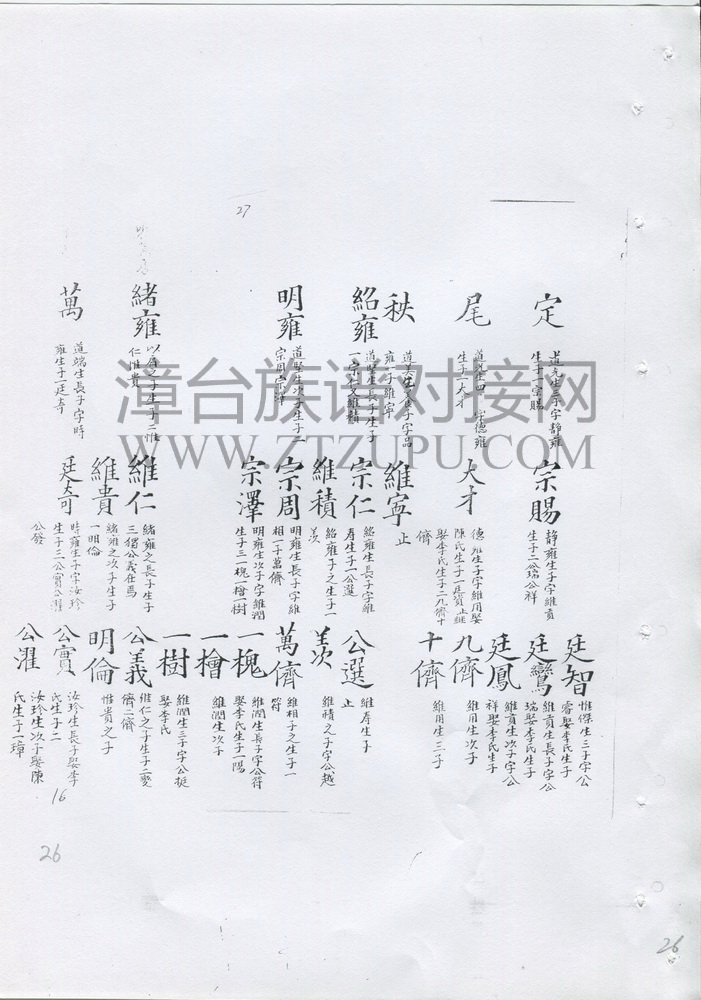 27
定
道充生三子字靜雍
生子一宗賜
尾
生子一大才
秧
道美生長子字品
雍一子維寧
紹雍
道墜生長子生子
明雍
道墜生次子生子二
宗周宗澤
緒雍
以為之子生子二惟
仁惟貴
萬
道端生長子字時
雍生子一廷奇
漳台族谱对接网
WWW.ZTZUPU.COM
宗賜
靜雍生子字維貢
生子二公瑞公祥
大才
德雍生子字維用娶
娶李氏生子二九儕十
儕
維寧
止
宗仁
紹雍生長子字維
寿生子一公選
維積
紹雍子之生子一
羨
宗周
明雍生長子字維
相一子萬儕
宗澤
明雍生次子字維潤
生子三一槐一檜一樹
維仁
緒雍之長子生子
維貴
緒雍之次子生子
一明倫
廷奇
時雍生子字汝珍
生子三公實公濯
公發
廷智
惟傑生三子字公
睿娶李氏生子
廷鸞
維貢生長子字公
瑞娶李氏生子
廷鳳
維貢生次子字公
祥娶李氏生子
九儕
維用生次子
十儕
維用生三子
公選
維寿生子
止
羨
維積之子字公越
萬儕
維相子之生子一
符
一槐
維潤生長子字公符
娶李氏生子一陽
一檜
維潤生次子
一樹
維潤生三子字公挺
娶李氏
公義
惟仁之子生子二雙
儕二儕
明倫
惟貴之子
公實
汝珍生長子娶李
氏生子二
公濯
汝珍生次子娶陳
氏生子一璋
16
26
26